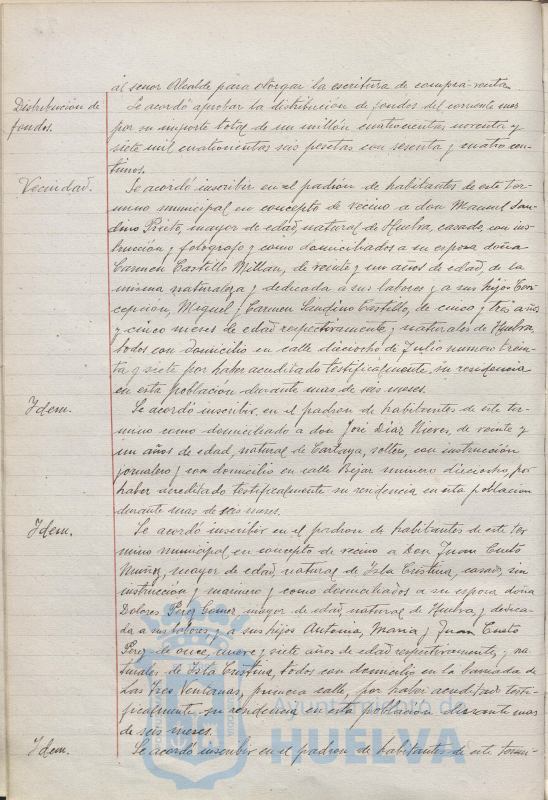 al señor Alcalde para otorgar la escritura de compra-venta.
Distribución de
fondos.
Se acordó aprobar la distribución de fondos del corriente mes
por su importe total de un millón cuatrocientas noventa y
siete mil cuatrocientas seis pesetas con sesenta y cuatro cén-
timos.
Vecindad.
Se acordó inscribir en el padrón de habitantes de este tér-
mino municipal en concepto de vecino a don Manuel San-
dino Prieto, mayor de edad, natural de Huelva, casado, con ins-
trucción y fotógrafo y como domiciliados a su esposa doña
Carmen Castillo Millán, de veinte y un años de edad, de la
misma naturaleza y dedicada a sus labores y a sus hijos Con-
cepción, Miguel y Carmen Sandino Castillo, de cinco y tres años
y cinco meses de edad respectivamente y naturales de Huelva,
todos con domicilio en calle dieciocho de Julio numero trein-
ta y siete por haber acreditado testificalmente su residencia
en esta población durante mas de seis meses.
Idem.
Se acordó inscribir en el padrón de habitantes de este tér-
mino como domiciliado a don José Díaz Nieves, de veinte y
un años de edad, natural de Cartaya, soltero, con instrucción
jornalero y con domicilio en calle Bejar numero dieciocho por
haber acreditado testificalmente su residencia en esta población
durante mas de seis meses.
Idem.
Se acordó inscribir en el padrón de habitantes de este tér
mino municipal en concepto de vecino a Don Juan Cueto
Muñoz, mayor de edad, natural de Isla Cristina, casado, sin
instrucción y marinero y como domiciliados a su esposa doña
Dolores Pérez Gómez mayor de edad, natural de Huelva y dedica-
da a sus labores y a sus hijos Antonia, María y Juan Cueto
Pérez de once, nueve y siete años de edad respectivamente y na-
turales de Isla Cristina, todos con domicilio en la barriada de
Las Tres Ventanas, primera calle, por haber acreditado testi-
ficalmente su residencia en esta población durante mas
de seis meses.
Idem.
Se acordó inscribir en el padrón de habitantes de este térmi-
Ayuntamiento de
HUELVA